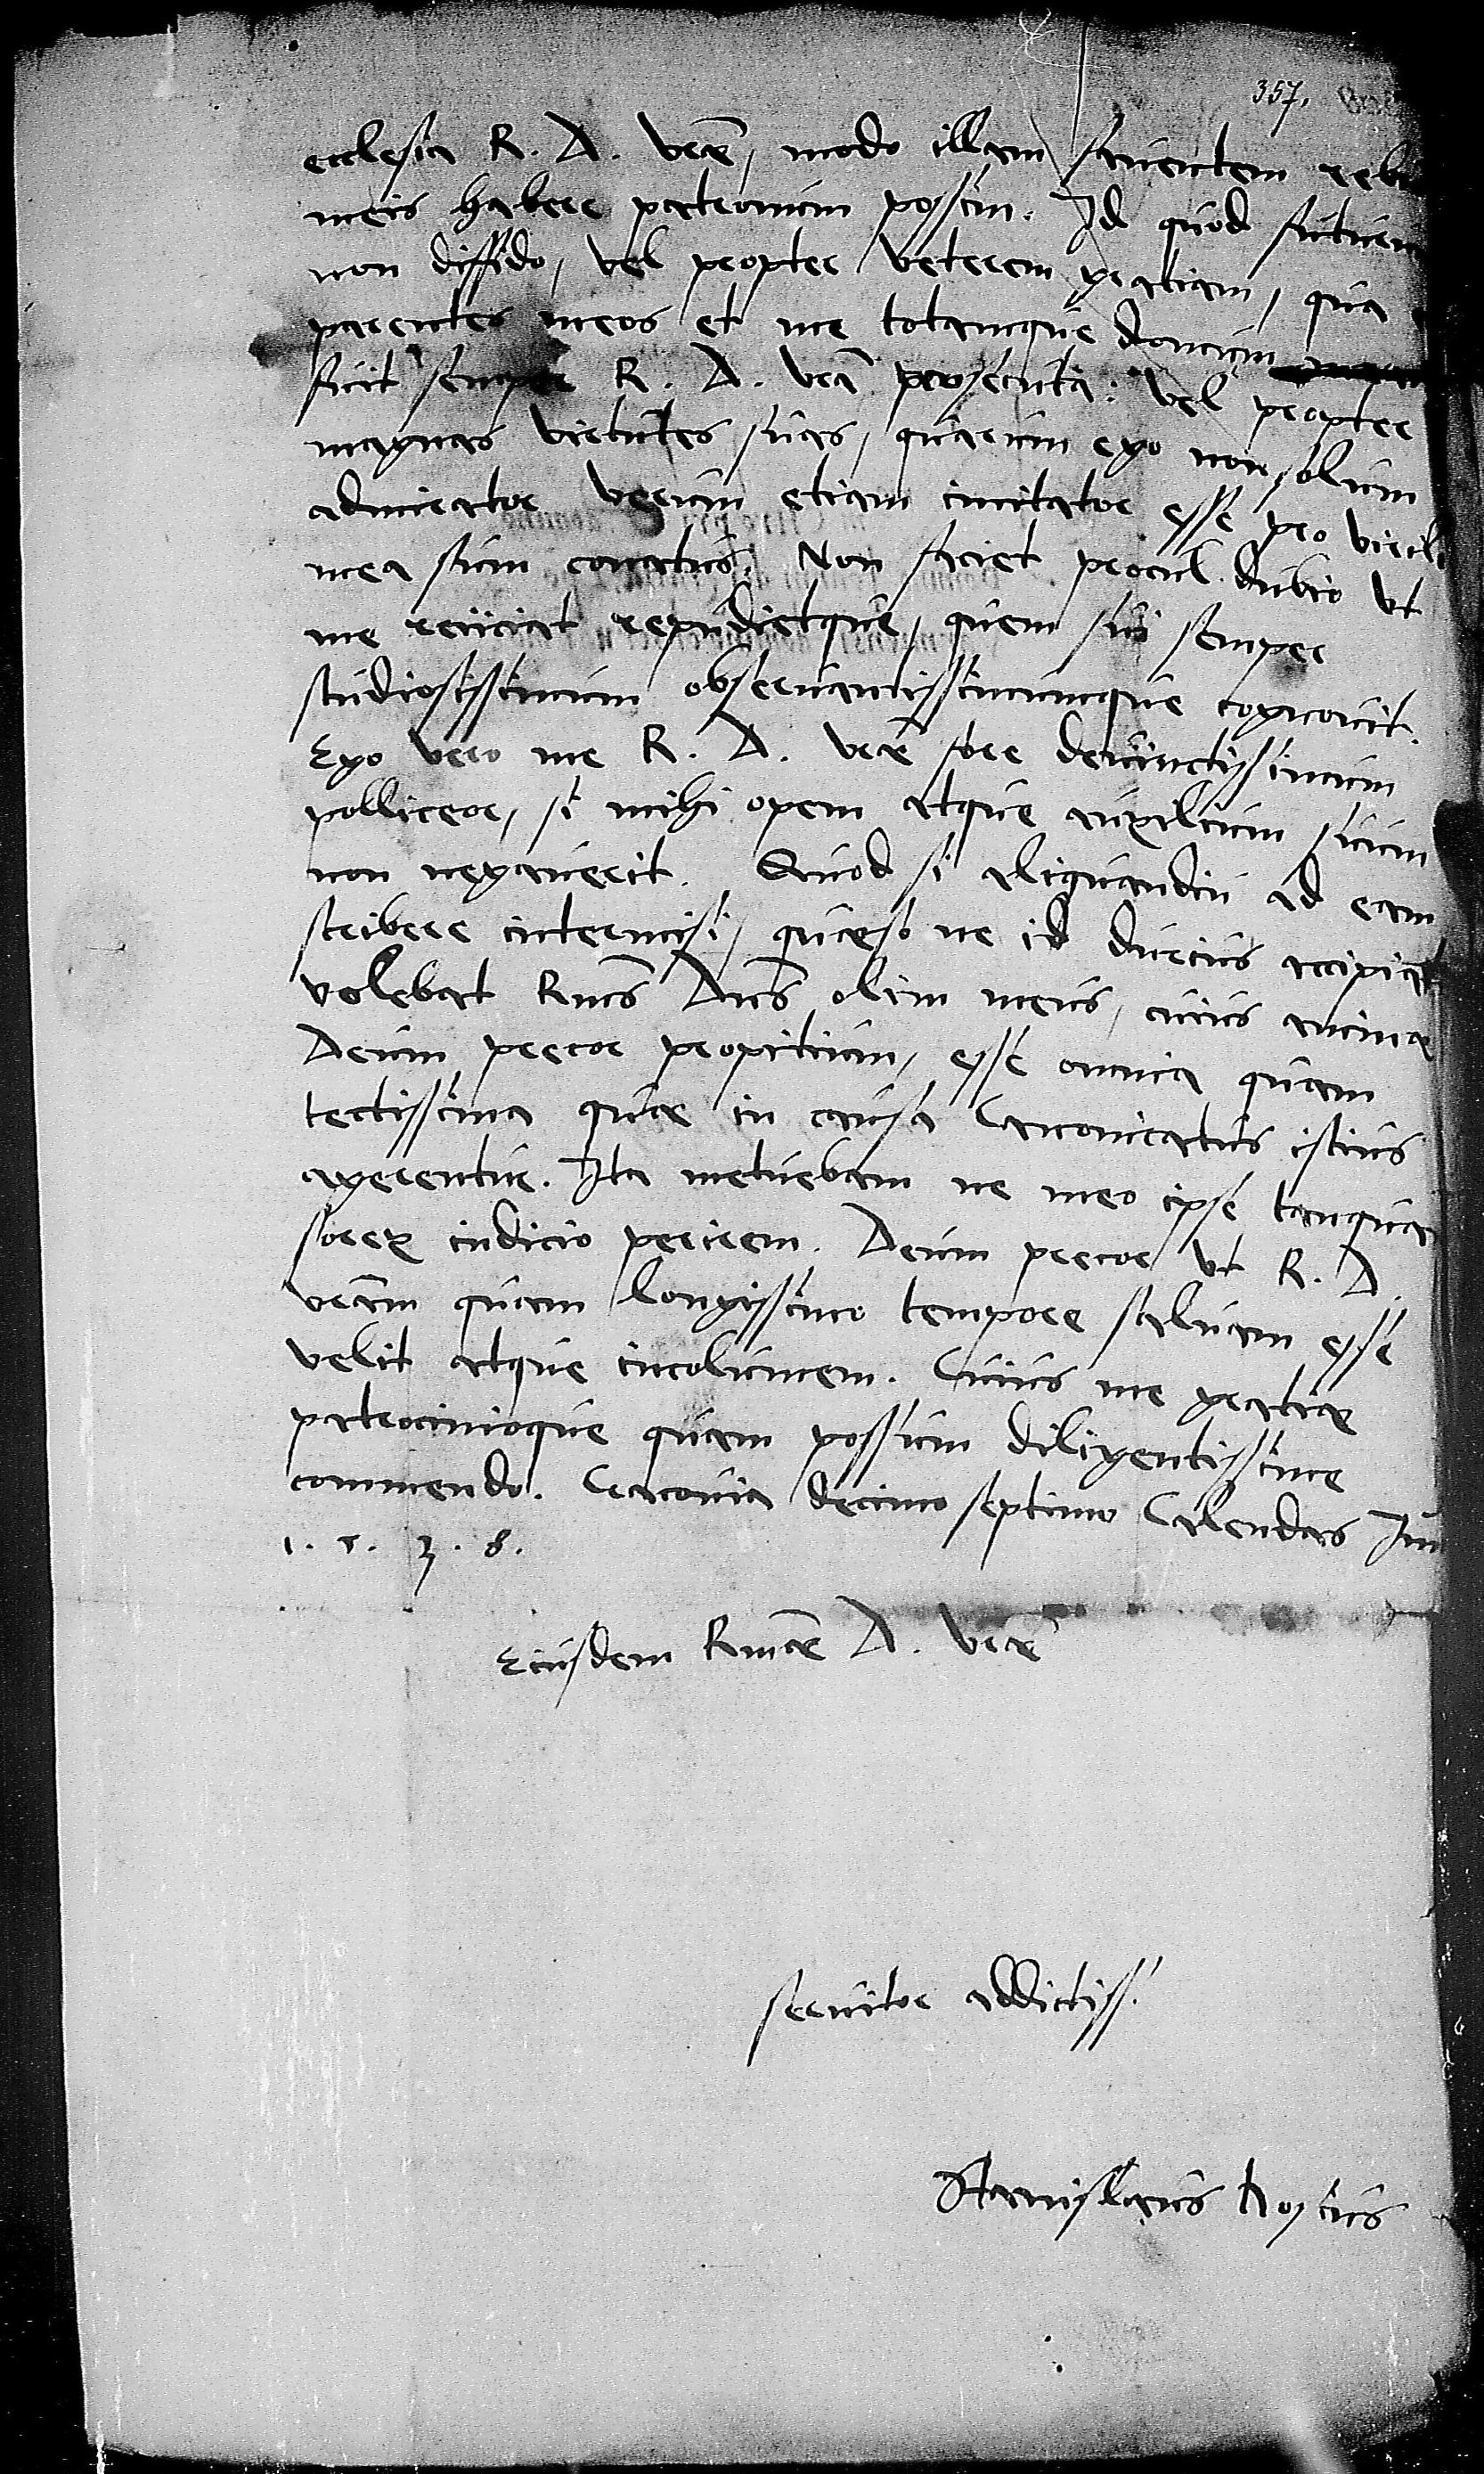 357.
ecclesia R. D. vr̄ae, modo illam fauentem
meis habere patronum possim. Id quod
non diffido, vel propter veterem gratiam, qua
parentes meos et me totamque domum
fuit semper R. D. vr̄a prosecuta: vel propter
magnas virtutes suas, quarum ego non solum
admirator verum etiam imitator esse pro virili
mea sum conatus. Non faciet procul dubio vt
me reiiciat repudietque, quem sui semper
studiosissimum obseruantissimumque cognouit.
Ego vero me R. D. vr̄ae fore deuinctissimum
polliceor, si mihi opem atque auxilium suum
non negauerit. Quod si aliquandiu ad eam
scribere intermisi, quaeso ne id durius accipiat
volebat Rm̄us Dn̄us olim meus, cuius animae
Deum precor propitium, esse omnia quam
tectissima quae in causa Canonicatus istius
agerentur. Ita metuebam ne meo ipse tanquam
sorex indicio perirem. Deum precor vt R. D.
vr̄am quam longissimo tempore saluam esse
velit atque incolumem. Cuius me gratiae
patrocinioque quam possum diligentissime
commendo. Cracouia decimo septimo Calendas
1.5.3.8.
Eiusdem Rm̄ae D. vr̄ae
seruitor addictiss.
Stanislaus Hosius